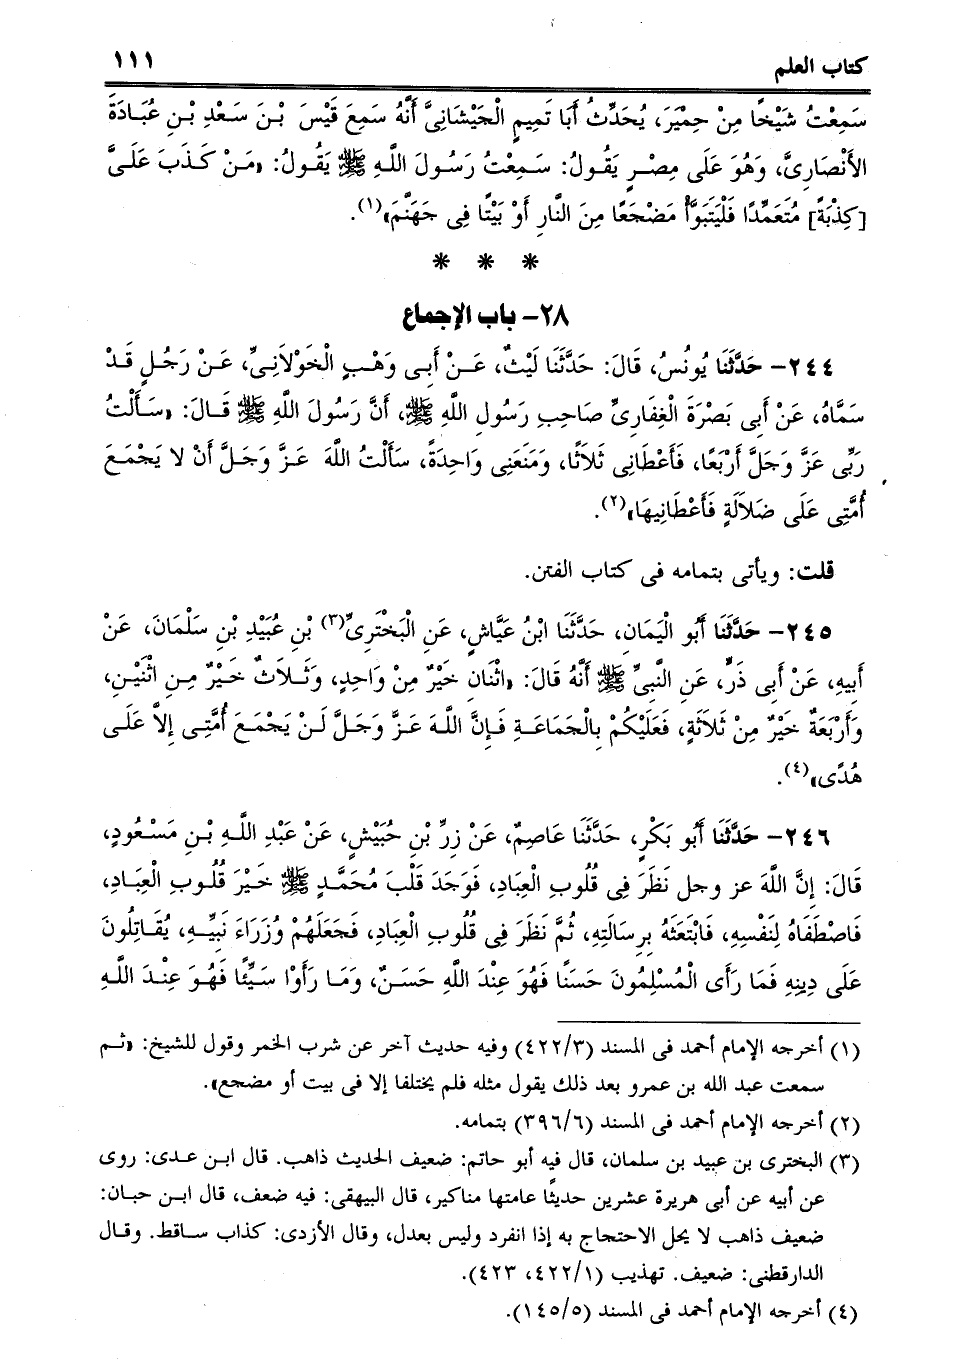 كتاب العلم ١١١
سَمِعْتُ شَيْخًا مِنْ حِمْيَرَ، يُحَدِّثُ أَبَا تَمِيمٍ الْجَيْشَانِىَّ أَنَّهُ سَمِعَ قَيْسَ بْنَ سَعْدِ بْنِ عُبَادَةَ
الأَنْصَارِىَّ، وَهُوَ عَلَى مِصْرٍ يَقُولُ: سَمِعْتُ رَسُولَ اللَّهِ ﷺ يَقُولُ: «مَنْ كَذَبَ عَلَىَّ
[كِذْبَةً] مُتَعَمِّدًا فَلْيَتَبَوَّأْ مَضْجَعًا مِنَ النَّارِ أَوْ بَيْتًا فِى جَهَنَّمَ»(١).
* * *
٢٨- باب الإجماع
٢٤٤- حَدَّثَنَا يُونُسُ، قَالَ: حَدَّثَنَا لَيْثٌ، عَنْ أَبِى وَهْبٍ الْخَوْلَانِىِّ، عَنْ رَجُلٍ قَدْ
سَمَّاهُ، عَنْ أَبِى بَصْرَةَ الْغِفَارِىِّ صَاحِبِ رَسُولِ اللَّهِ ﷺ، أَنَّ رَسُولَ اللَّهِ ﷺ قَالَ: «سَأَلْتُ
رَبِّى عَزَّ وَجَلَّ أَرْبَعًا، فَأَعْطَانِى ثَلَاثًا، وَمَنَعَنِى وَاحِدَةً، سَأَلْتُ اللَّهَ عَزَّ وَجَلَّ أَنْ لا يَجْمَعَ
أُمَّتِى عَلَى ضَلاَلَةٍ فَأَعْطَانِيهَا»(٢).
قلت: ويأتى بتمامه فى كتاب الفتن.
٢٤٥- حَدَّثَنَا أَبُو الْيَمَانِ، حَدَّثَنَا ابْنُ عَيَّاشٍ، عَنِ الْبَخْتَرِىِّ(٣) بْنِ عُبَيْدِ بْنِ سَلْمَانَ، عَنْ
أَبِيهِ، عَنْ أَبِى ذَرٍّ، عَنِ النَّبِىِّ ﷺ أَنَّهُ قَالَ: «اثْنَانِ خَيْرٌ مِنْ وَاحِدٍ، وَثَلاَثٌ خَيْرٌ مِنِ اثْنَيْنِ،
وَأَرْبَعَةٌ خَيْرٌ مِنْ ثَلاَثَةٍ، فَعَلَيْكُمْ بِالْجَمَاعَةِ فَإِنَّ اللَّهَ عَزَّ وَجَلَّ لَنْ يَجْمَعَ أُمَّتِى إِلاَّ عَلَى
هُدًى»(٤).
٢٤٦- حَدَّثَنَا أَبُو بَكْرٍ، حَدَّثَنَا عَاصِمٌ، عَنْ زِرِّ بْنِ حُبَيْشٍ، عَنْ عَبْدِ اللَّهِ بْنِ مَسْعُودٍ،
قَالَ: إِنَّ اللَّهَ عز وجل نَظَرَ فِى قُلُوبِ الْعِبَادِ، فَوَجَدَ قَلْبَ مُحَمَّدٍ ﷺ خَيْرَ قُلُوبِ الْعِبَادِ،
فَاصْطَفَاهُ لِنَفْسِهِ، فَابْتَعَثَهُ بِرِسَالَتِهِ، ثُمَّ نَظَرَ فِى قُلُوبِ الْعِبَادِ، فَجَعَلَهُمْ وُزَرَاءَ نَبِيِّهِ، يُقَاتِلُونَ
عَلَى دِينِهِ فَمَا رَأَى الْمُسْلِمُونَ حَسَنًا فَهُوَ عِنْدَ اللَّهِ حَسَنٌ، وَمَا رَأَوْا سَيِّئًا فَهُوَ عِنْدَ اللَّهِ
(١) أخرجه الإمام أحمد فى المسند (٤٢٢/٣) وفيه حديث آخر عن شرب الخمر وقول للشيخ: «ثم
سمعت عبد الله بن عمرو بعد ذلك يقول مثله فلم يختلفا إلا فى بيت أو مضجع».
(٢) أخرجه الإمام أحمد فى المسند (٣٩٦/٦) بتمامه.
(٣) البخترى بن عبيد بن سلمان، قال فيه أبو حاتم: ضعيف الحديث ذاهب. قال ابن عدى: روى
عن أبيه عن أبى هريرة عشرين حديثًا عامتها مناكير، قال البيهقى: فيه ضعف، قال ابن حبان:
ضعيف ذاهب لا يحل الاحتجاج به إذا انفرد وليس بعدل، وقال الأزدى: كذاب ساقط. وقال
الدارقطنى: ضعيف. تهذيب (٤٢٢/١، ٤٢٣).
(٤) أخرجه الإمام أحمد فى المسند (١٤٥/٥).